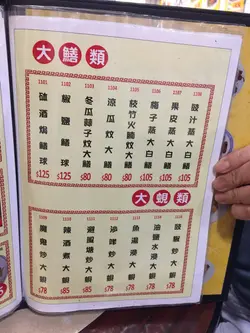 大鱔類
1101 砵酒焗鱔球 $125
1102 椒鹽鱔球 $125
1103 冬瓜蒜子炆大鱔 $80
1104 涼瓜炆大鱔 $80
1105 枝竹火腩炆大鱔 $80
1106 梅子蒸大白鱔 $105
1107 果皮蒸大白鱔 $105
1108 豉汁蒸大白鱔 $105
大蜆類
魔鬼炒大蜆 $78
辣酒煮大蜆 $85
避風塘炒大蜆 $85
炒大蜆 $78
魚湯浸大蜆 $78
油鹽水浸大蜆 $78
豉椒炒大蜆 $78